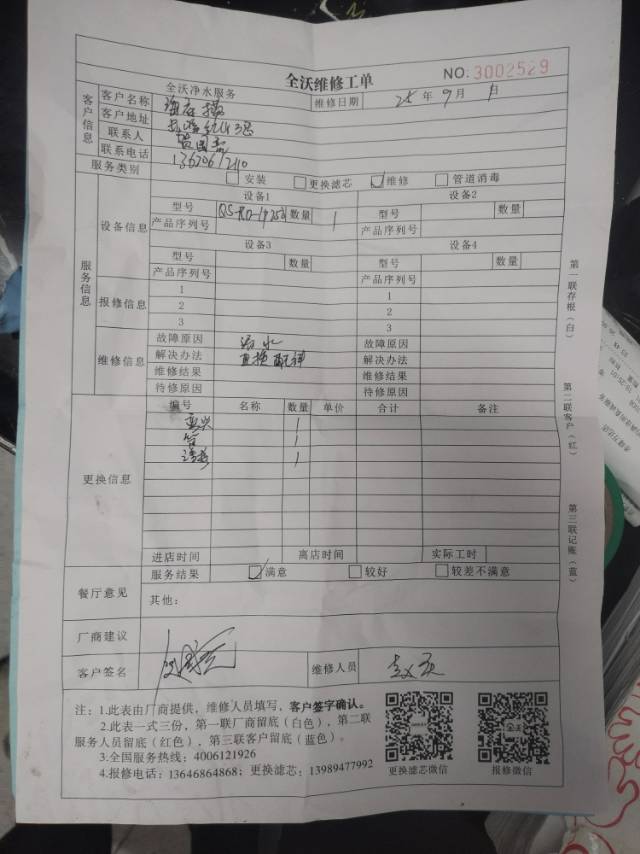 全沃维修工单
NO. 3002529
全沃净水服务 维修日期 25年9月1日
客户信息
客户名称
客户地址
联系人
联系电话
服务类别 安装 更换滤芯 维修 管道消毒
服务信息
设备信息
设备1 设备2
型号 数量 1 型号 数量
产品序列号 产品序列号
设备3 设备4
型号 数量 型号 数量
产品序列号 产品序列号
报修信息
1 1
2 2
3 3
维修信息
故障原因 漏水 故障原因
解决办法 更换配件 解决办法
维修结果 维修结果
待修原因 待修原因
更换信息
编号 名称 数量 单价 合计 备注
1
管 1
1
进店时间 离店时间 实际工时
餐厅意见
服务结果 满意 较好 较差不满意
其他：
厂商建议
客户签名 维修人员
注：1.此表由厂商提供，维修人员填写，客户签字确认。
2.此表一式三份，第一联厂商留底（白色），第二联
服务人员留底（红色），第三联客户留底（蓝色）。
3.全国服务热线：4006121926
4.报修电话：13646864868；更换滤芯：13989477992
更换滤芯微信 报修微信
第一联存根（白）
第二联客户（红）
第三联记账（蓝）